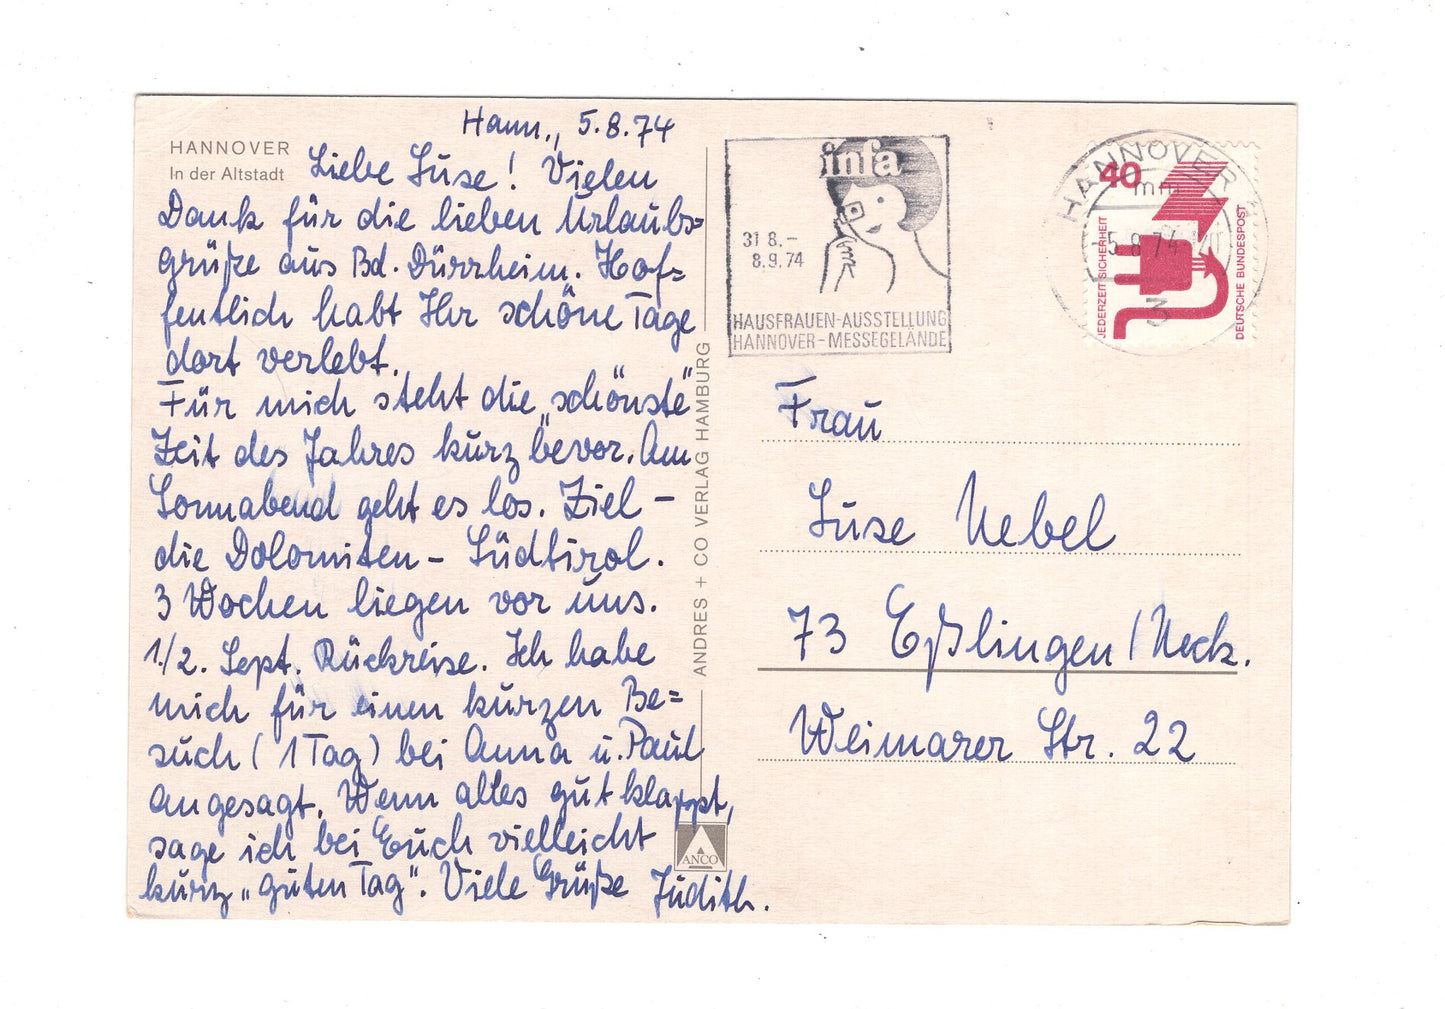 HANNOVER
In der Altstadt
Hann., 5.8.74
Liebe Suse! Vielen
Dank für die lieben Urlaubs=
grüße aus Bd. Dürrheim. Hof=
fentlich habt Ihr schöne Tage
dort verlebt.
Für mich steht die „schönste"
Zeit des Jahres kurz bevor. Am
Sonnabend geht es los. Ziel -
die Dolomiten - Südtirol.
3 Wochen liegen vor uns.
1./2. Sept. Rückreise. Ich habe
mich für einen kurzen Be=
such (1 Tag) bei Anna u. Paul
angesagt. Wenn alles gut klappt,
sage ich bei Euch vielleicht
kurz „guten Tag". Viele Grüße Judith.
ANDRES + CO VERLAG HAMBURG
ANCO
infa
31 8.-
8.9.74
HAUSFRAUEN-AUSSTELLUNG
HANNOVER-MESSEGELÄNDE
HANNOVER
mm
-5.8.74
3
40
JEDERZEIT SICHERHEIT
DEUTSCHE BUNDESPOST
Frau
Suse Nebel
73 Eßlingen/Neck.
Weimarer Str. 22